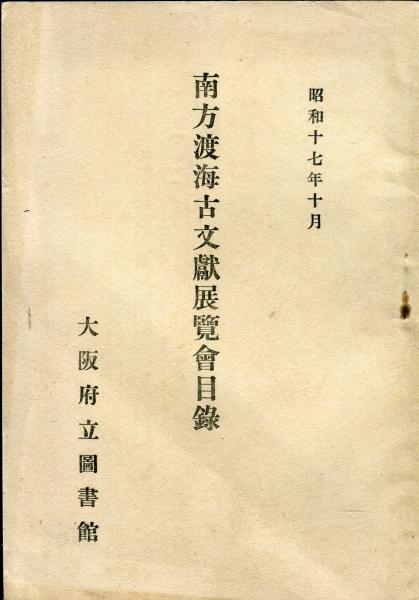 昭和十七年十月
南方渡海古文獻展覽會目錄
大阪府立圖書館